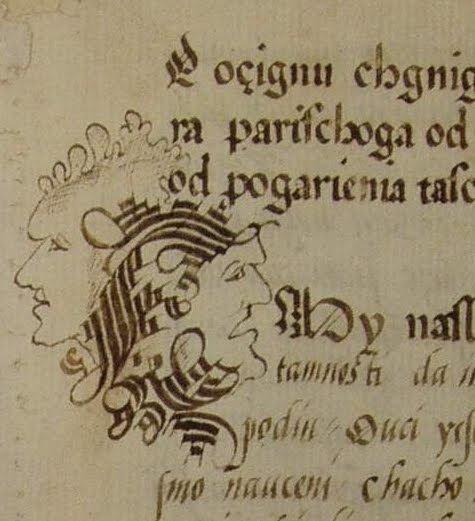 E oçignu chgnig
ra pariſchoga od
od pogarienia taſc
My naſſ
tamnosti da n
podin Ouci ych
ſmo nauceni chacho